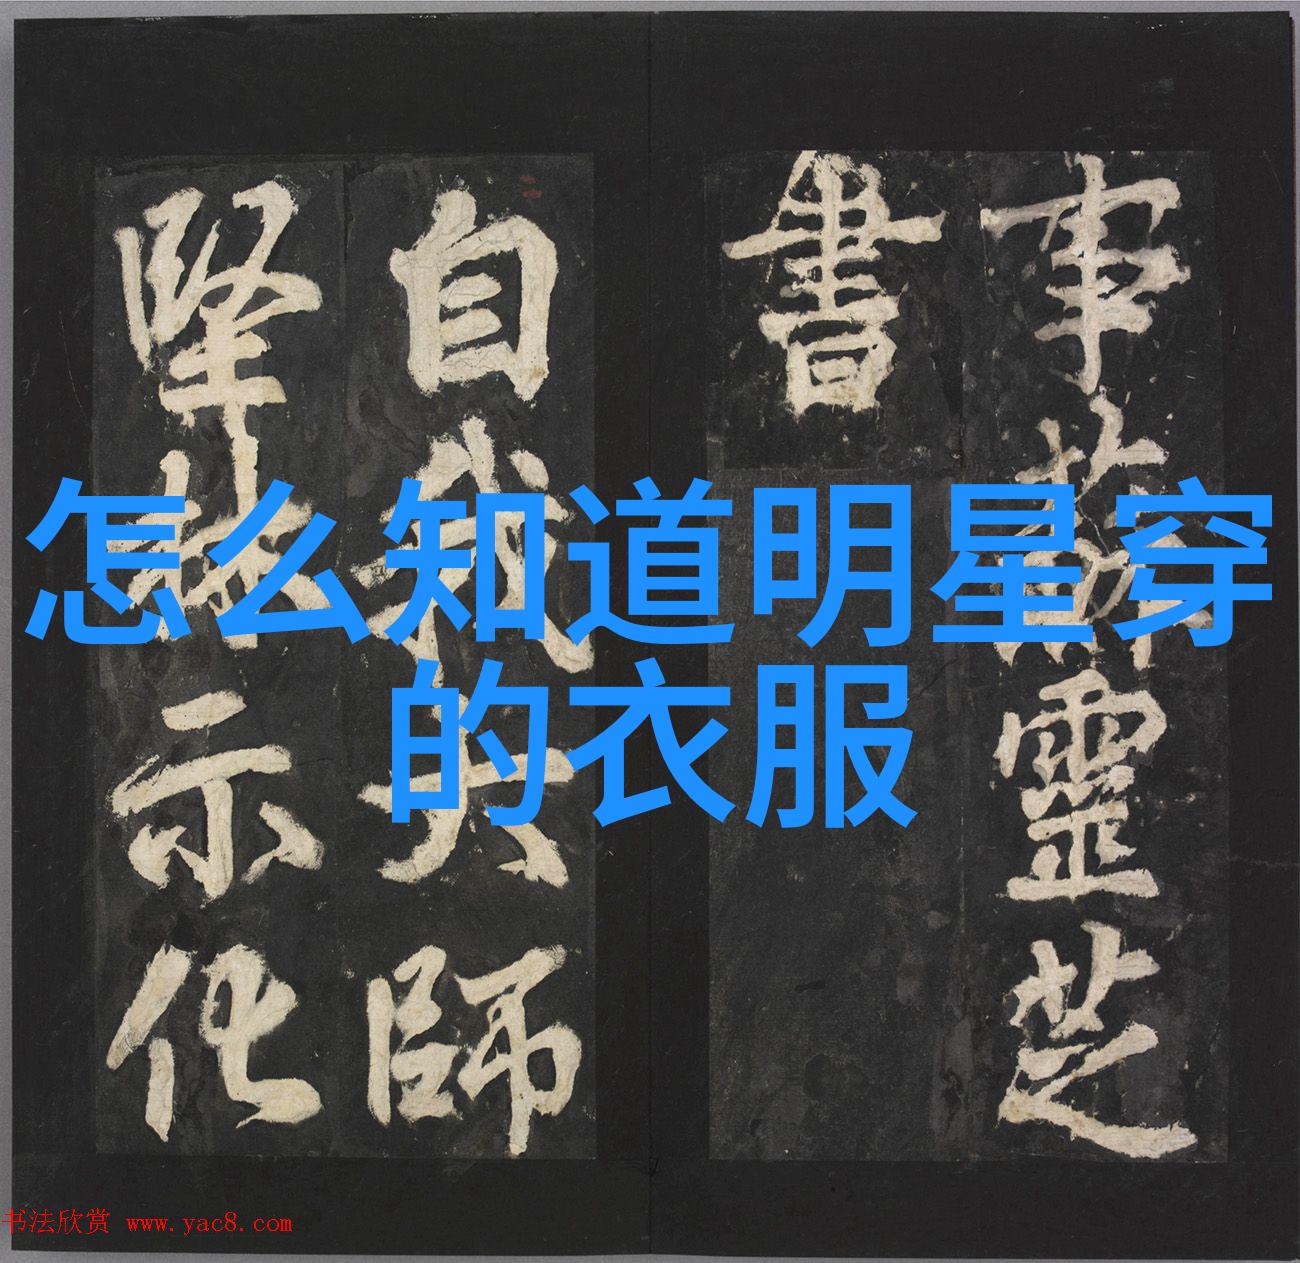 事勑靈芝
書
自我大師
堅林示化
怎么知道明星穿
的衣服
书法欣赏 www.yac8.com